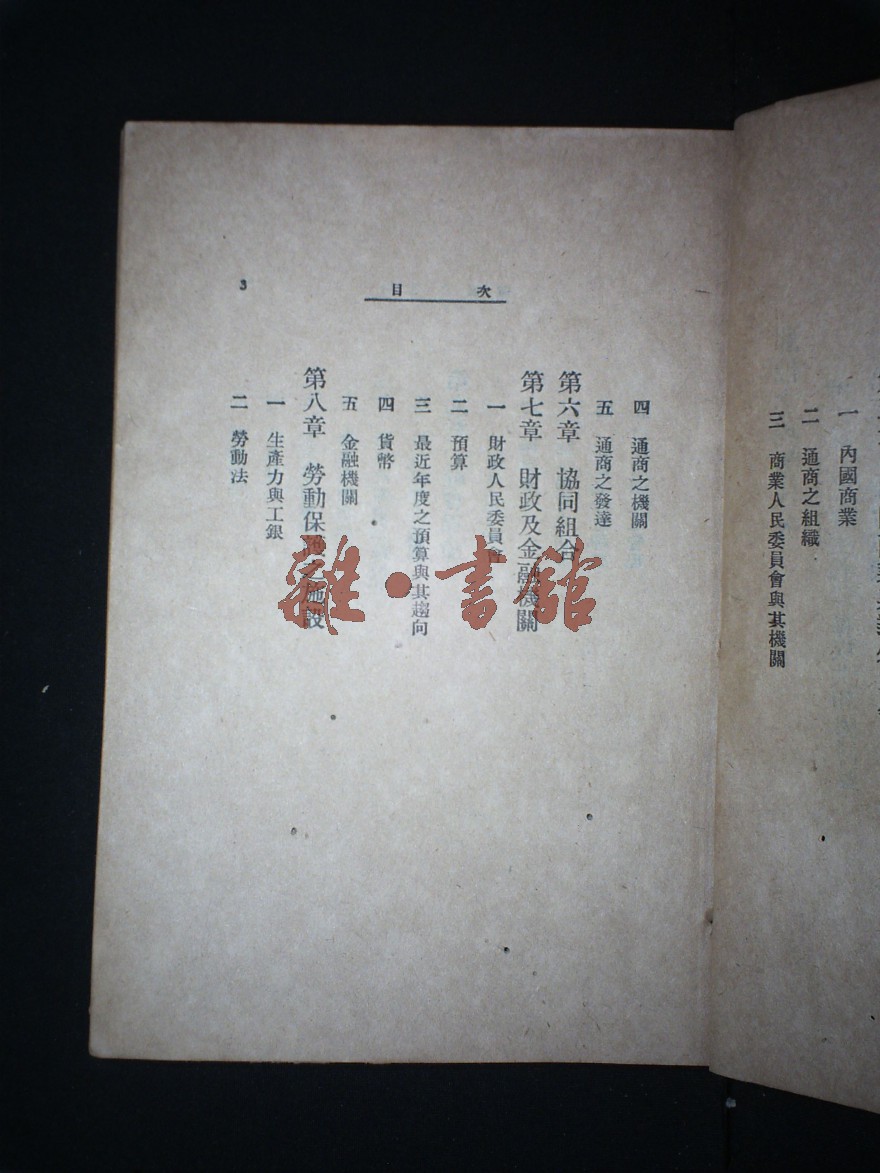 一 內國商業
二 通商之組織
三 商業人民委員會與其機關
次目
3
四 通商之機關
五 通商之發達
第六章 協同組合
第七章 財政及金融機關
一 財政人民委員會
二 預算
三 最近年度之預算與其趨向
四 貨幣
五 金融機關
第八章 勞動保護之施設
一 生產力與工銀
二 勞動法
雜·書館